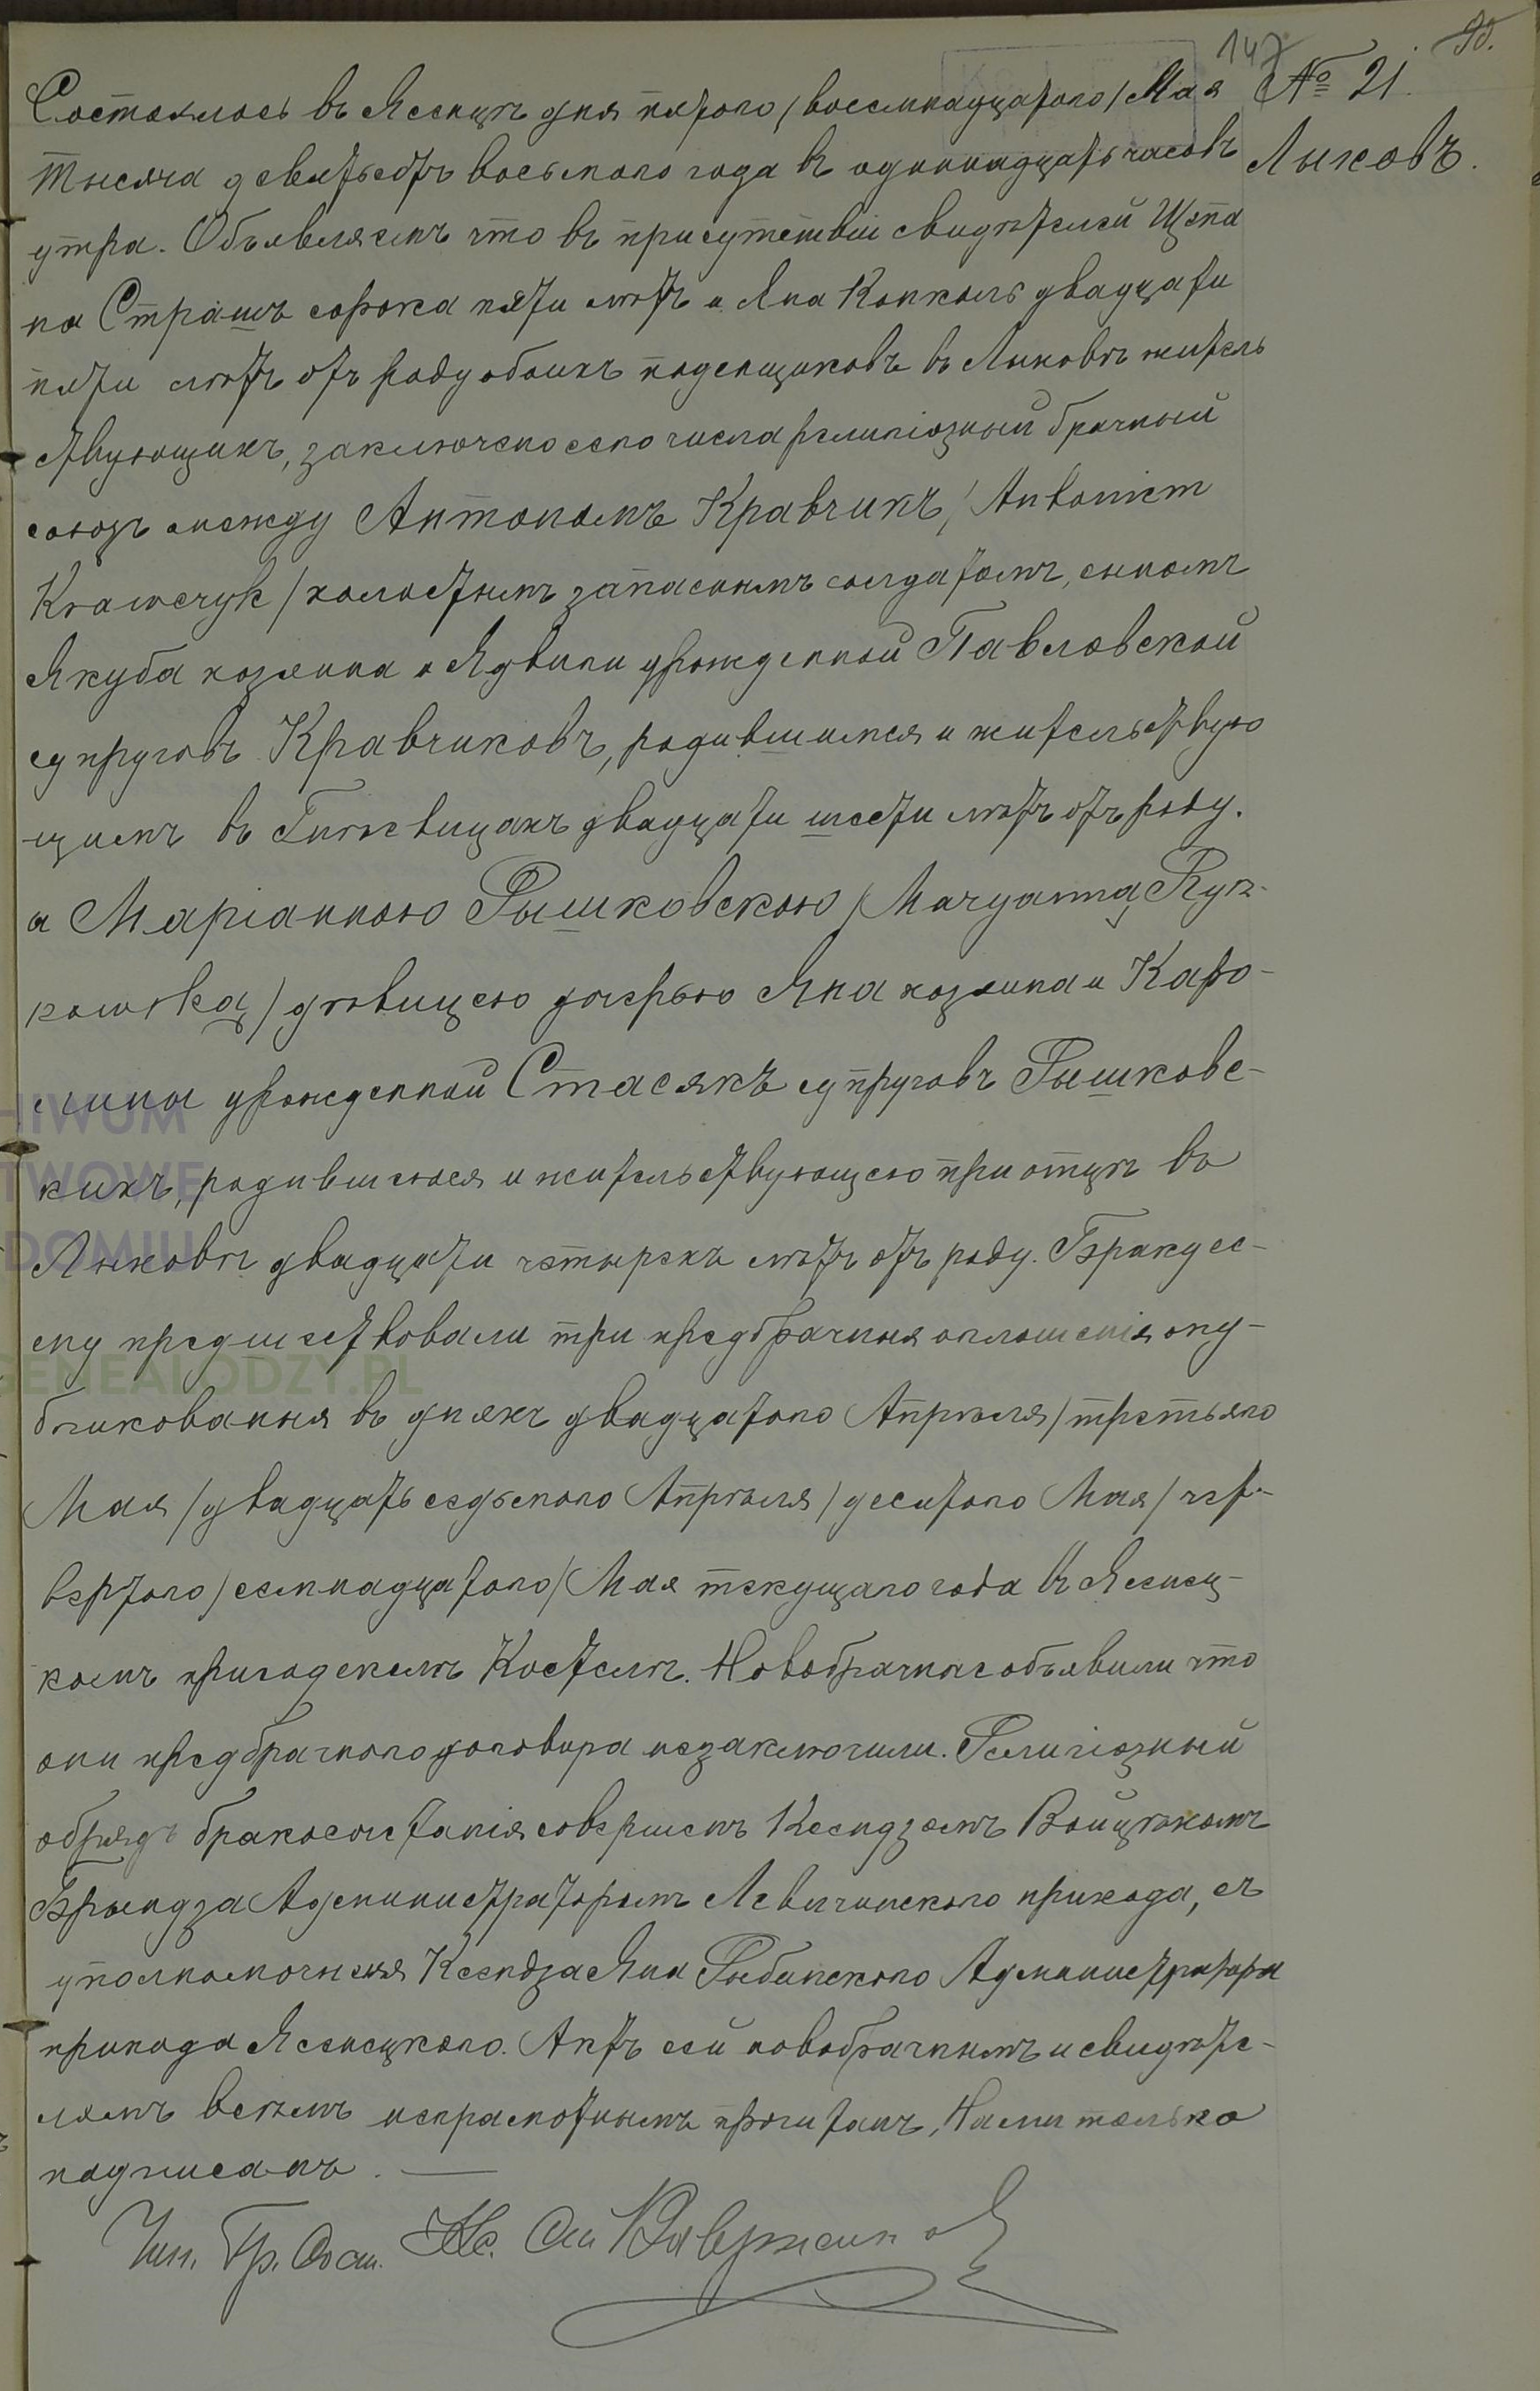 147
№ 21.
Лыковъ.
Состоялось въ Ясенцѣ дня пятого /восемнадцатого/ Мая
тысяча девятьсотъ восьмого года въ одиннадцать часовъ
утра. Объявляемъ что въ присутствіи свидѣтелей Щепа
на Страшъ сорока пяти лѣтъ и Яна Конколь двадцати
пяти лѣтъ отъ роду обоихъ поденщиковъ въ Лыковѣ житель
ствующихъ, заключено сего числа религіозный брачный
союзъ между Антономъ Кравчикъ / Antonim
Krawczyk / холостымъ запаснымъ солдатомъ, сыномъ
Якуба хозяина и Ядвиги урожденной Павловской
супруговъ Кравчиковъ, родившимся и жительствую
щимъ въ двадцати шести лѣтъ отъ роду.
а Маріанною Рышковскою / Maryanną Rysz-
kowską / дѣвицею дочерью Яна хозяина и Каро-
лины урожденной Стасякъ супруговъ Рышковс-
кихъ, родившеюся и жительствующею при отцѣ въ
Лыковѣ двадцати четырехъ лѣтъ отъ роду. Браку се-
му предшествовали три предбрачныя оглашенія опу-
бликованыя въ дняхъ двадцатого Апрѣля / третьяго
Мая / двадцать седьмого Апрѣля / десятого Мая / чет-
вертого / семнадцатого / Мая текущаго года въ Ясенец-
комъ приходскомъ Костелѣ. Новобрачные объявили что
они предбрачного договора незаключили. Религіозный
обрядъ бракосочетанія совершенъ Ксендзомъ Войцѣхомъ
Брындза Администраторомъ Левичинского прихода, съ
уполномоченія Ксендза Яна Рыбинского Администратора
прихода Ясенецкого. Актъ сей новобрачнымъ и свидѣте-
лямъ всѣмъ неграмотнымъ прочитанъ, Нами только
подписанъ. —
Чин. Гр. Сост. Кс.